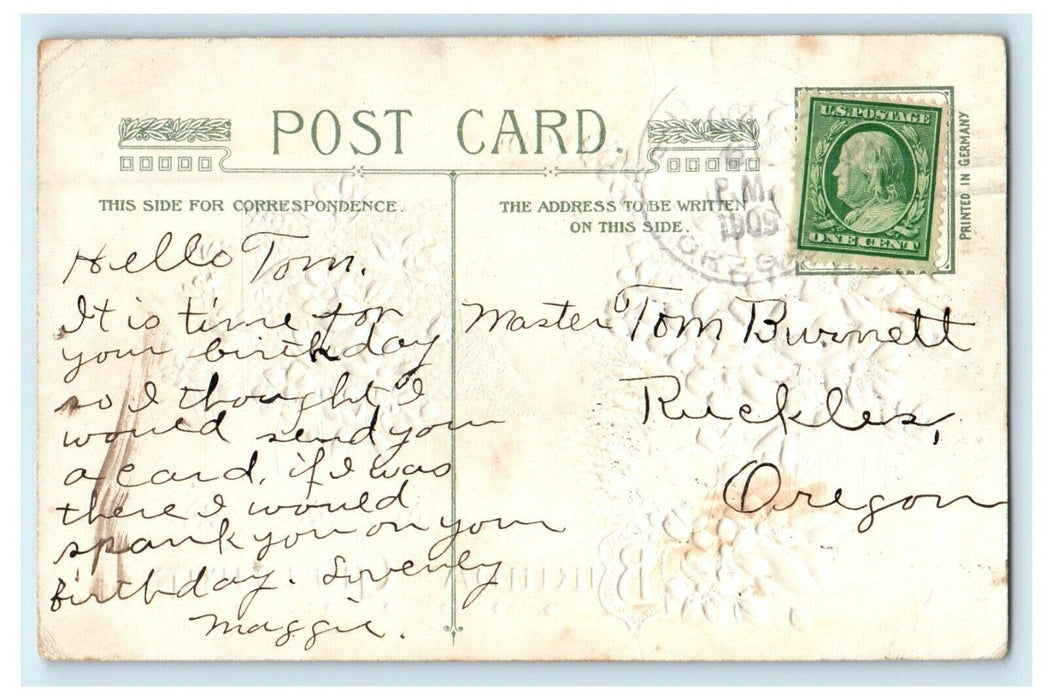 POST CARD.
THIS SIDE FOR CORRESPONDENCE.
THE ADDRESS TO BE WRITTEN
ON THIS SIDE.
U.S. POSTAGE
ONE CENT
PRINTED IN GERMANY
P.M.
1909
OREGON
Hello Tom.
It is time for
your birthday
so I thought I
would send you
a card, if I was
there I would
spank you on your
birthday. Lovenly
Maggie.
Master Tom Burnett
Ruckles,
Oregon